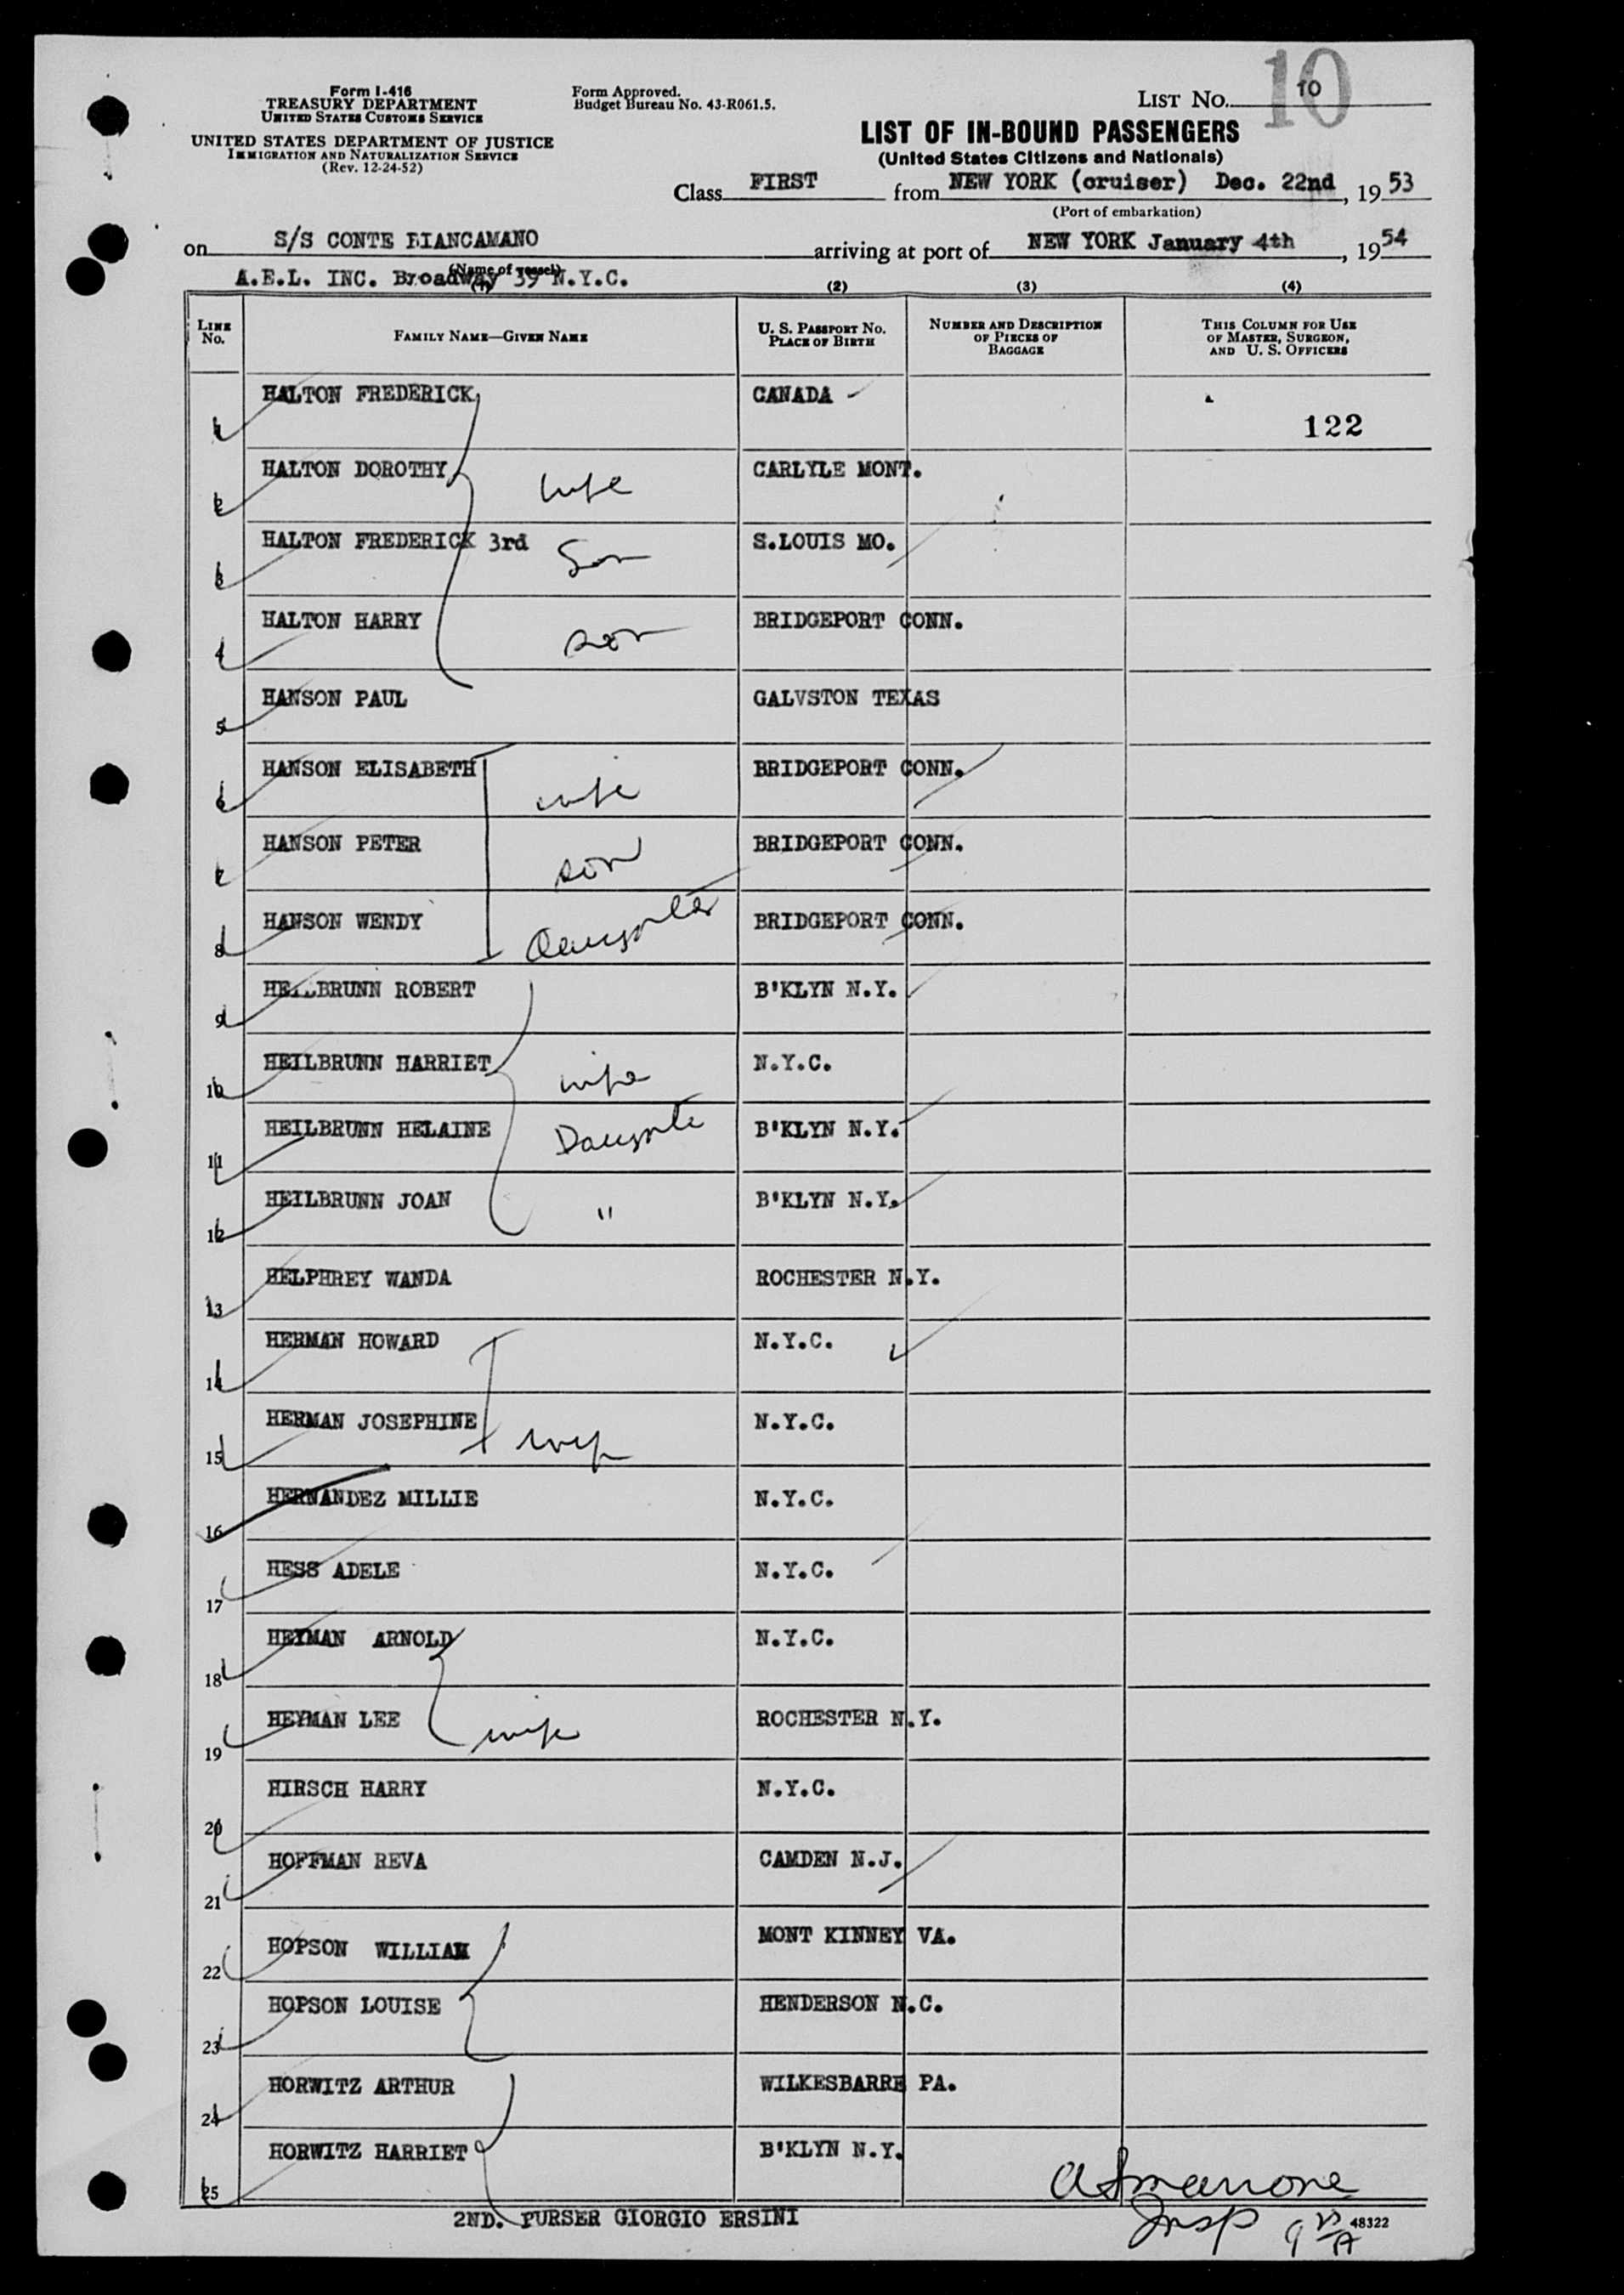 Form I-416
TREASURY DEPARTMENT
UNITED STATES CUSTOMS SERVICE
UNITED STATES DEPARTMENT OF JUSTICE
IMMIGRATION AND NATURALIZATION SERVICE
(Rev. 12-24-52)
Form Approved.
Budget Bureau No. 43-R061.5.
LIST NO. 10
10
LIST OF IN-BOUND PASSENGERS
(United States Citizens and Nationals)
Class FIRST from NEW YORK (cruiser) Dec. 22nd, 1953
(Port of embarkation)
on S/S CONTE BIANCAMANO arriving at port of NEW YORK January 4th, 1954
(Name of vessel)
A.E.L. INC. Broadway 39 N.Y.C.
(1) (2) (3) (4)
LINE No. FAMILY NAME—GIVEN NAME U. S. PASSPORT NO. PLACE OF BIRTH NUMBER AND DESCRIPTION OF PIECES OF BAGGAGE THIS COLUMN FOR USE OF MASTER, SURGEON, AND U. S. OFFICERS
1 HALTON FREDERICK CANADA 122
2 HALTON DOROTHY wife CARLYLE MONT.
3 HALTON FREDERICK 3rd Son S.LOUIS MO.
4 HALTON HARRY son BRIDGEPORT CONN.
5 HANSON PAUL GALVSTON TEXAS
6 HANSON ELISABETH wife BRIDGEPORT CONN.
7 HANSON PETER son BRIDGEPORT CONN.
8 HANSON WENDY Daughter BRIDGEPORT CONN.
9 HEILBRUNN ROBERT B'KLYN N.Y.
10 HEILBRUNN HARRIET wife N.Y.C.
11 HEILBRUNN HELAINE Daughter B'KLYN N.Y.
12 HEILBRUNN JOAN " B'KLYN N.Y.
13 HELPHREY WANDA ROCHESTER N.Y.
14 HERMAN HOWARD N.Y.C.
15 HERMAN JOSEPHINE wife N.Y.C.
16 HERNANDEZ MILLIE N.Y.C.
17 HESS ADELE N.Y.C.
18 HEYMAN ARNOLD N.Y.C.
19 HEYMAN LEE wife ROCHESTER N.Y.
20 HIRSCH HARRY N.Y.C.
21 HOFFMAN REVA CAMDEN N.J.
22 HOPSON WILLIAM MONT KINNEY VA.
23 HOPSON LOUISE HENDERSON N.C.
24 HORWITZ ARTHUR WILKESBARRE PA.
25 HORWITZ HARRIET B'KLYN N.Y.
2ND. PURSER GIORGIO ERSINI
Insp
48322